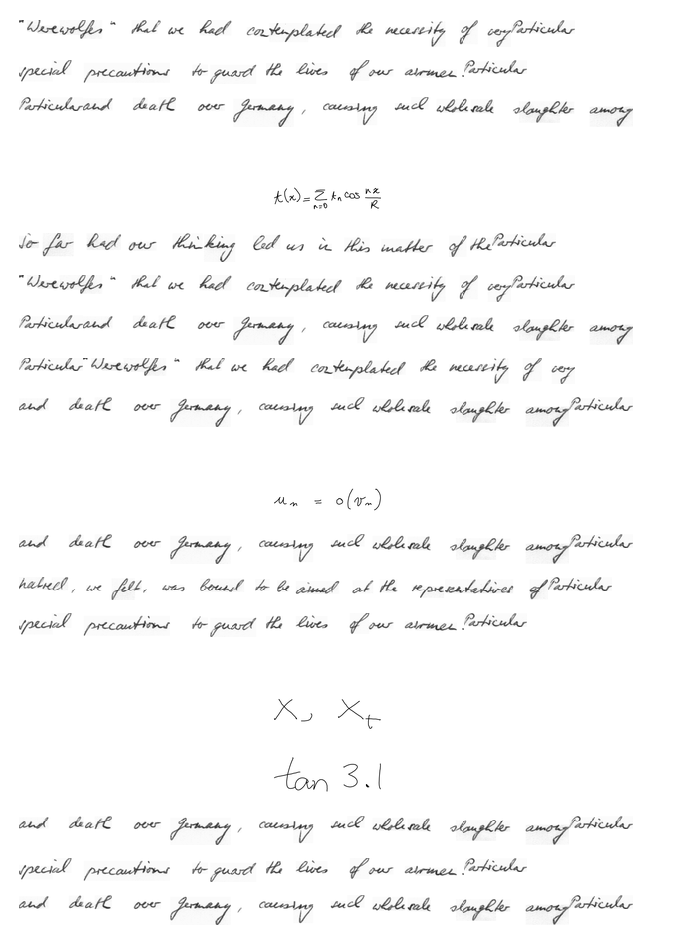 "Werewolfes" that we had contemplated the necessity of very Particular
special precautions to guard the lives of our airmen. Particular
Particular and death over Germany, causing such wholesale slaughter among
t(x) = ∑_{n=0} t_n cos \frac{nx}{R}
So far had our thinking led us in this matter of the Particular
"Werewolfes" that we had contemplated the necessity of very Particular
Particular and death over Germany, causing such wholesale slaughter among
Particular "Werewolfes" that we had contemplated the necessity of very
and death over Germany, causing such wholesale slaughter among Particular
u_n = o(v_n)
and death over Germany, causing such wholesale slaughter among Particular
hatred, we felt, was bound to be aimed at the representatives of Particular
special precautions to guard the lives of our airmen. Particular
X, X_t
tan 3.1
and death over Germany, causing such wholesale slaughter among Particular
special precautions to guard the lives of our airmen. Particular
and death over Germany, causing such wholesale slaughter among Particular